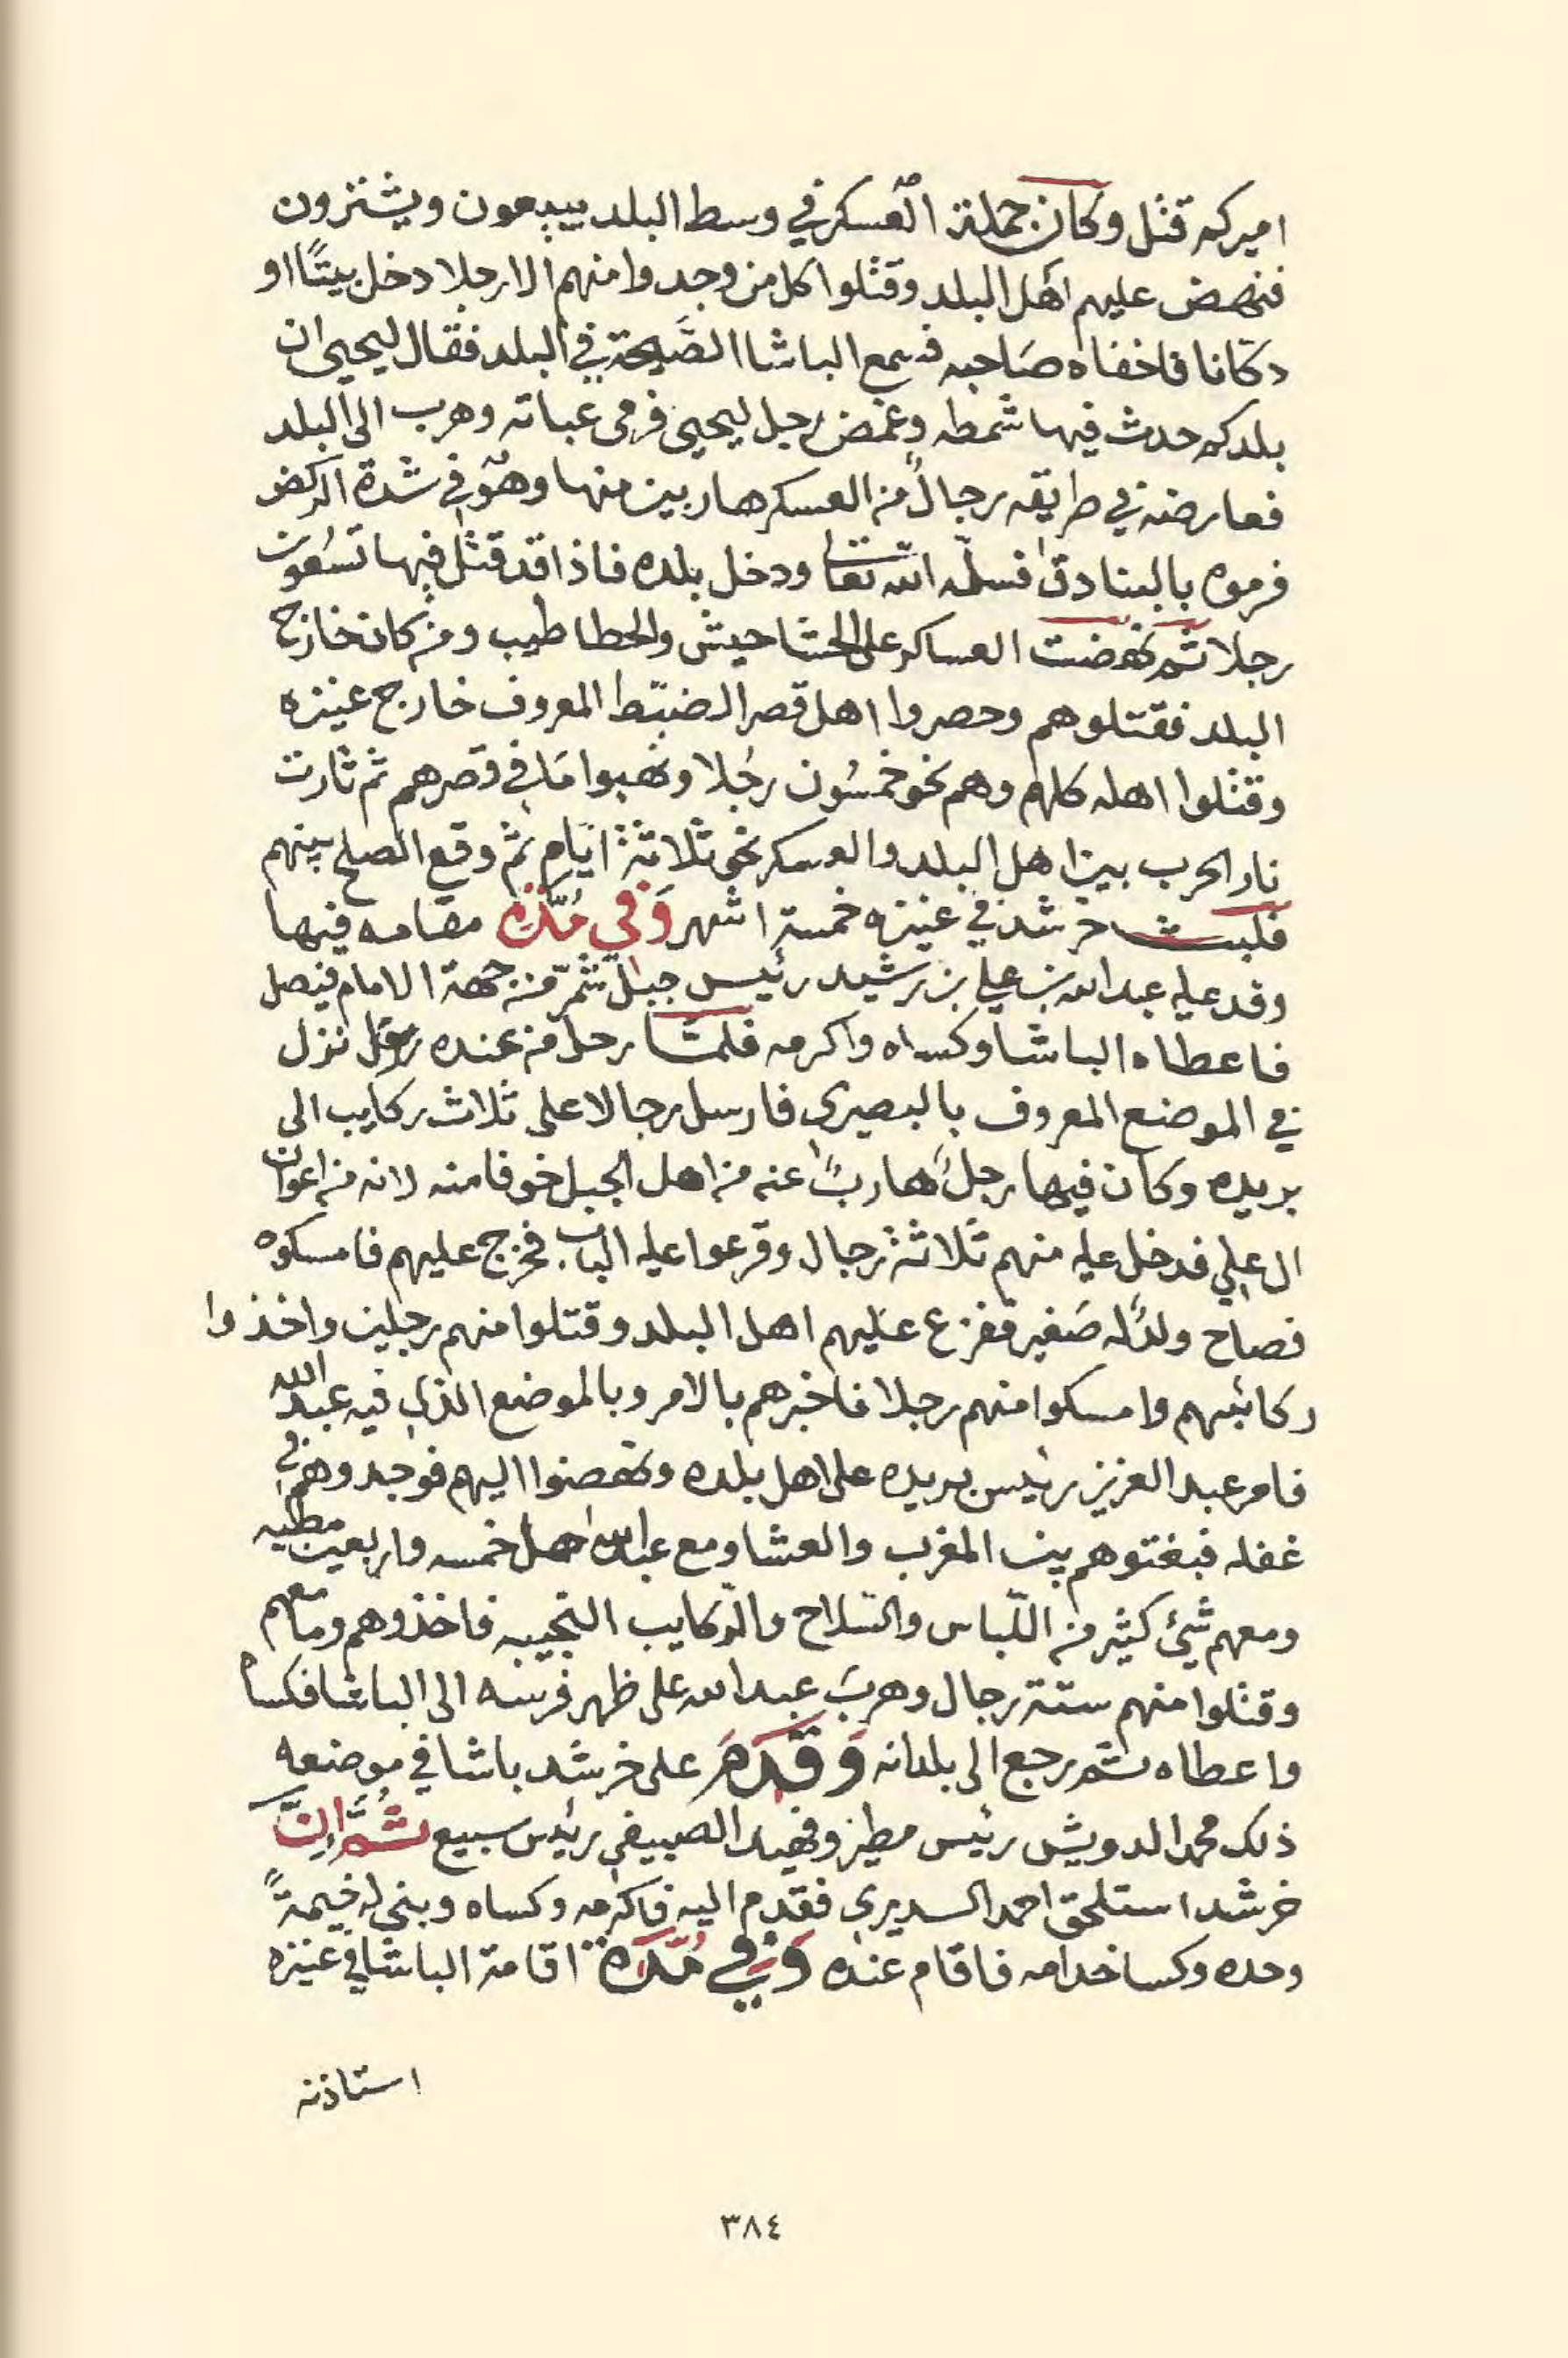 اميركم قتل وكان جملة العسكر في وسط البلد يبيعون ويشترون
فنهض عليهم اهل البلد وقتلوا كل من وجدوا منهم الا رجلا دخل بيتًا او
دكانا فاخفاه صَاحبه فسمع الباشا الصَّيحة في البلد فقال ليحيى ان
بلدكم حدث فيها شمطه وغمض رجل ليحيى فرمى عباته وهرب الى البلد
فعارضه في طريقه رجالٌ من العسكر هاربين منها وهو في شدة الركض
فرموه بالبنادق فسلّمه الله تعالى ودخل بلده فاذا قد قتل فيها تسعون
رجلا ثم نهضت العساكر على الحشاحيش والحطاطيب ومن كان خارج
البلد فقتلوهم وحصروا اهل قصر الضبّط المعروف خارج عنيزه
وقتلوا اهله كلهم وهم نحو خمسُون رجُلا ونهبوا مَا في قصرهم ثم ثارت
نار الحرب بين اهل البلد والعسكر نحو ثلاثة ايام ثم وقع الصلح بينهم
فلبث خرشد في عنيزه خمسة اشهر وَفي مُدّة مقامه فيها
وفد عليه عبدالله بن علي بن رشيد رئيس جبل شمّر من جهة الامام فيصل
فاعطاه الباشا وكساه واكرمه فلمّا رحل من عنده نزل
في الموضع المعروف بالبصيري فارسل رجالا على ثلاث ركايب الى
بريده وكان فيها رجلٌ هاربٌ عنه من اهل الجبل خوفا منه لانه من اعوان
ال علي فدخل عليه منهم ثلاثة رجال وقرعوا عليه الباب فخرج عليهم فامسكوه
فصاح ولدٌ له صَغير ففزع عليهم اهل البلد وقتلوا منهم رجلين واخذوا
ركائبهم وامسكوا منهم رجلا فاخبرهم بالامر وبالموضع الذي فيه عبدالله
فامر عبدالعزيز رئيس بريده على اهل بلده ونهضوا اليهم فوجدوهم في
غفله فبغتوهم بين المغرب والعشا ومع عبدالله اهل خمسه واربعين مطيه
ومعهم شئ كثير من اللّباس والسّلاح والرّكايب النجيبه فاخذوهم وما معهم
وقتلوا منهم ستة رجال وهربَ عبدالله على ظهر فرسه الى الباشا فكساه
واعطاه ثم رجع الى بلدانه وَقدمَ على خرشد باشا في موضعه
ذلك محمد الدويش رئيس مطير وفهيد الصييفي رئيس سبيع ثُمَّ انَّ
خرشد استلحق احمد السديري فقدم اليه فاكرمه وكساه وبنى له خيمةً
وحده وكسا خدامه فاقام عنده وَفي مُدّة اقامة الباشا في عنيزه
استاذنه
٣٨٤